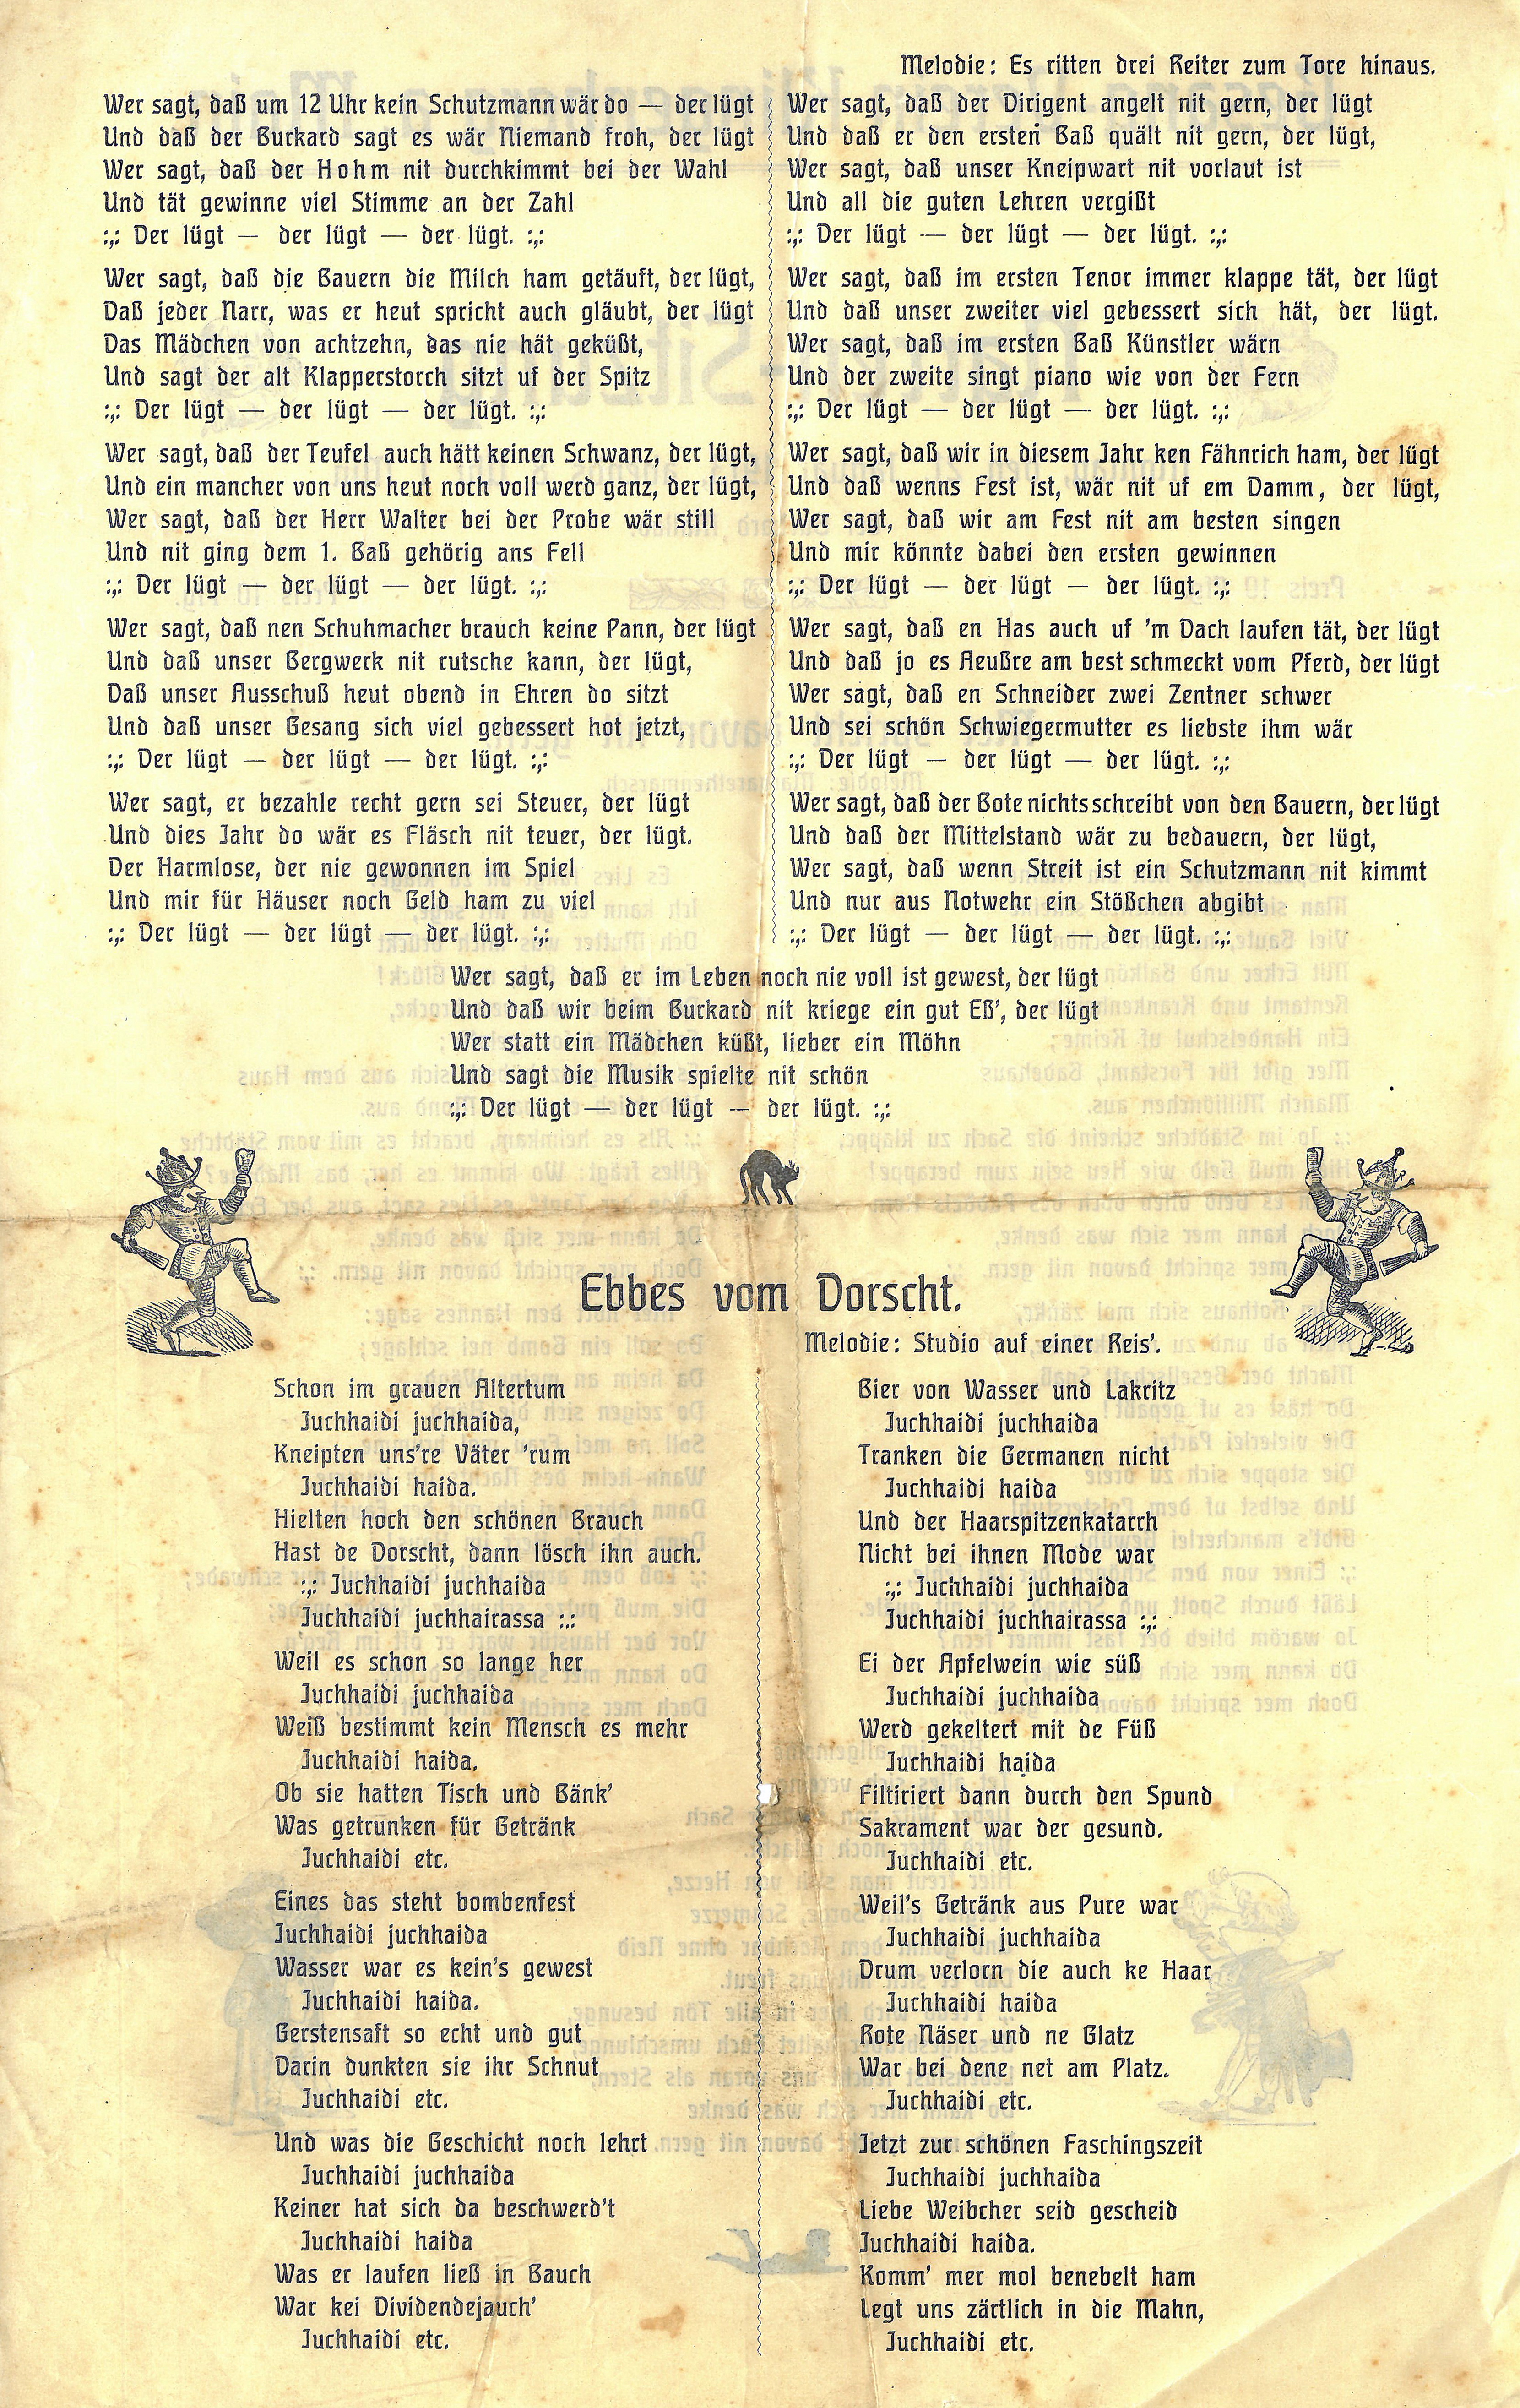 Melodie: Es ritten drei Reiter zum Tore hinaus.
Wer sagt, daß um 12 Uhr kein Schutzmann wär do — der lügt
Und daß der Burkard sagt es wär Niemand froh, der lügt
Wer sagt, daß der Hohm nit durchkimmt bei der Wahl
Und tät gewinne viel Stimme an der Zahl
:,: Der lügt — der lügt — der lügt. :,:
Wer sagt, daß die Bauern die Milch ham getäuft, der lügt,
Daß jeder Narr, was er heut spricht auch gläubt, der lügt
Das Mädchen von achtzehn, das nie hät geküßt,
Und sagt der alt Klapperstorch sitzt uf der Spitz
:,: Der lügt — der lügt — der lügt. :,:
Wer sagt, daß der Teufel auch hätt keinen Schwanz, der lügt,
Und ein mancher von uns heut noch voll werd ganz, der lügt,
Wer sagt, daß der Herr Walter bei der Probe wär still
Und nit ging dem 1. Baß gehörig ans Fell
:,: Der lügt — der lügt — der lügt. :,:
Wer sagt, daß nen Schuhmacher brauch keine Pann, der lügt
Und daß unser Bergwerk nit rutsche kann, der lügt,
Daß unser Ausschuß heut obend in Ehren do sitzt
Und daß unser Gesang sich viel gebessert hot jetzt,
:,: Der lügt — der lügt — der lügt. :,:
Wer sagt, er bezahle recht gern sei Steuer, der lügt
Und dies Jahr do wär es Fläsch nit teuer, der lügt.
Der Harmlose, der nie gewonnen im Spiel
Und mir für Häuser noch Geld ham zu viel
:,: Der lügt — der lügt — der lügt. :,:
Wer sagt, daß der Dirigent angelt nit gern, der lügt
Und daß er den ersten Baß quält nit gern, der lügt,
Wer sagt, daß unser Kneipwart nit vorlaut ist
Und all die guten Lehren vergißt
:,: Der lügt — der lügt — der lügt. :,:
Wer sagt, daß im ersten Tenor immer klappe tät, der lügt
Und daß unser zweiter viel gebessert sich hät, der lügt.
Wer sagt, daß im ersten Baß Künstler wärn
Und der zweite singt piano wie von der Fern
:,: Der lügt — der lügt — der lügt. :,:
Wer sagt, daß wir in diesem Jahr ken Fähnrich ham, der lügt
Und daß wenns Fest ist, wär nit uf em Damm, der lügt,
Wer sagt, daß wir am Fest nit am besten singen
Und mir könnte dabei den ersten gewinnen
:,: Der lügt — der lügt — der lügt. :,:
Wer sagt, daß en Has auch uf 'm Dach laufen tät, der lügt
Und daß jo es Aeußre am best schmeckt vom Pferd, der lügt
Wer sagt, daß en Schneider zwei Zentner schwer
Und sei schön Schwiegermutter es liebste ihm wär
:,: Der lügt — der lügt — der lügt. :,:
Wer sagt, daß der Bote nichts schreibt von den Bauern, der lügt
Und daß der Mittelstand wär zu bedauern, der lügt,
Wer sagt, daß wenn Streit ist ein Schutzmann nit kimmt
Und nur aus Notwehr ein Stößchen abgibt
:,: Der lügt — der lügt — der lügt. :,:
Wer sagt, daß er im Leben noch nie voll ist gewest, der lügt
Und daß wir beim Burkard nit kriege ein gut Eß', der lügt
Wer statt ein Mädchen küßt, lieber ein Möhn
Und sagt die Musik spielte nit schön
:,: Der lügt — der lügt — der lügt. :,:
Ebbes vom Dorscht.
Melodie: Studio auf einer Reis'.
Schon im grauen Altertum
Juchhaidi juchhaida,
Kneipten uns're Väter 'rum
Juchhaidi haida.
Hielten hoch den schönen Brauch
Hast de Dorscht, dann lösch ihn auch.
:,: Juchhaidi juchhaida
Juchhaidi juchhairassa :,:
Weil es schon so lange her
Juchhaidi juchhaida
Weiß bestimmt kein Mensch es mehr
Juchhaidi haida.
Ob sie hatten Tisch und Bänk'
Was getrunken für Getränk
Juchhaidi etc.
Eines das steht bombenfest
Juchhaidi juchhaida
Wasser war es kein's gewest
Juchhaidi haida.
Gerstensaft so echt und gut
Darin dunkten sie ihr Schnut
Juchhaidi etc.
Und was die Geschicht noch lehrt
Juchhaidi juchhaida
Keiner hat sich da beschwerd't
Juchhaidi haida
Was er laufen ließ in Bauch
War kei Dividendejauch'
Juchhaidi etc.
Bier von Wasser und Lakritz
Juchhaidi juchhaida
Tranken die Germanen nicht
Juchhaidi haida
Und der Haarspitzenkatarrh
Nicht bei ihnen Mode war
:,: Juchhaidi juchhaida
Juchhaidi juchhairassa :,:
Ei der Apfelwein wie süß
Juchhaidi juchhaida
Werd gekeltert mit de Füß
Juchhaidi haida
Filtiriert dann durch den Spund
Sakrament war der gesund.
Juchhaidi etc.
Weil's Getränk aus Pure war
Juchhaidi juchhaida
Drum verlorn die auch ke Haar
Juchhaidi haida
Rote Näser und ne Glatz
War bei dene net am Platz.
Juchhaidi etc.
Jetzt zur schönen Faschingszeit
Juchhaidi juchhaida
Liebe Weibcher seid gescheid
Juchhaidi haida.
Komm' mer mol benebelt ham
Legt uns zärtlich in die Mahn,
Juchhaidi etc.